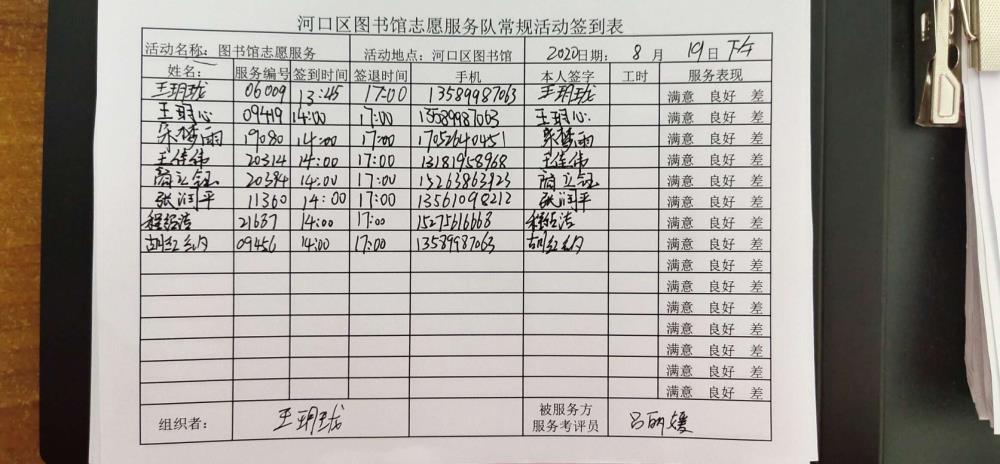 河口区图书馆志愿服务队常规活动签到表
活动名称: 图书馆志愿服务 活动地点: 河口区图书馆 2020日期: 8 月 19 日 下午
姓名: 服务编号 签到时间 签退时间 手机 本人签字 工时 服务表现
王玥珑 06009 13:45 17:00 13589987063 王玥珑 满意 良好 差
王玥心 09419 14:00 17:00 13589987063 王玥心 满意 良好 差
宋梦雨 19080 14:00 17:00 17052640451 宋梦雨 满意 良好 差
王佳伟 20314 14:00 17:00 13181958968 王佳伟 满意 良好 差
20394 14:00 17:00 15263863923 满意 良好 差
张润平 11360 14:00 17:00 13561098212 张润平 满意 良好 差
21687 14:00 17:00 15275616668 满意 良好 差
胡红 09456 14:00 17:00 13589987063 胡红 满意 良好 差
满意 良好 差
满意 良好 差
满意 良好 差
满意 良好 差
满意 良好 差
满意 良好 差
满意 良好 差
组织者: 王玥珑 被服务方 吕丽媛
服务考评员